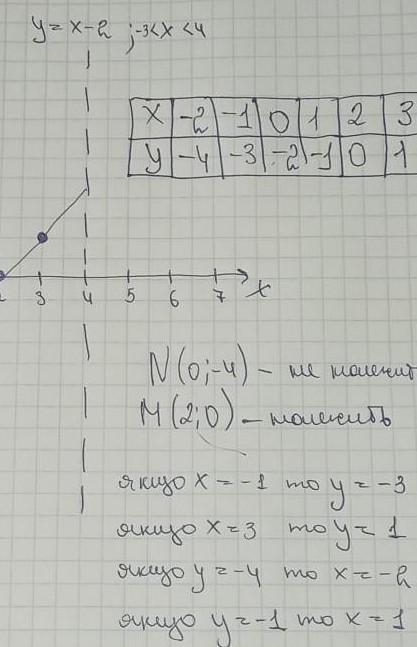 y = x - 2 ; -3 < x < 4
x -2 -1 0 1 2 3
y -4 -3 -2 -1 0 1
3 4 5 6 7 x
N(0;-4) - не належит
M(2;0) - належить
якщо x = -1 то y = -3
якщо x = 3 то y = 1
якщо y = -4 то x = -2
якщо y = -1 то x = 1